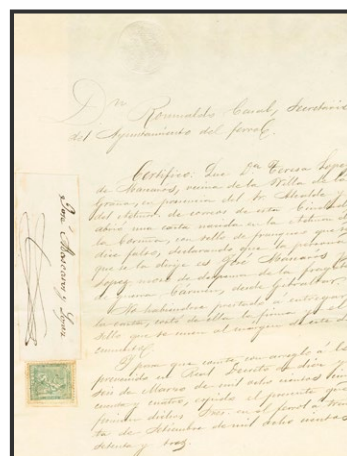 Dn Romualdo Canal, Secretario
del Ayuntamiento del ferrol.
Certifico: Que Dª Teresa Lopez
de Mascaros, vecina de la Villa de la
Graña, en presencia del Sr. Alcalde y
del Admor. de correos de esta Ciudad
abrió una carta nacida en la Admon de
la Coruña, con sello de franqueo que se
dice falso, declarando que la persona
que se la dirije es José Mascaros y
Lopez
de guerra Cármen, desde Gibraltar.
No habiendose prestado á entregar
la carta, cortó de ella la firma y el
sello que se unen al margen de este do
cumento.
Y para que conste, con arreglo á lo
prevenido en Real Decreto de diez y
seis de Marzo de mil ocho cientos cin
cuenta y cuatro, espido el presente que
firman dichos Sres. en el ferrol á trein
ta de Setiembre de mil ocho cientos
setenta y tres.
José Mascaros y Lopez